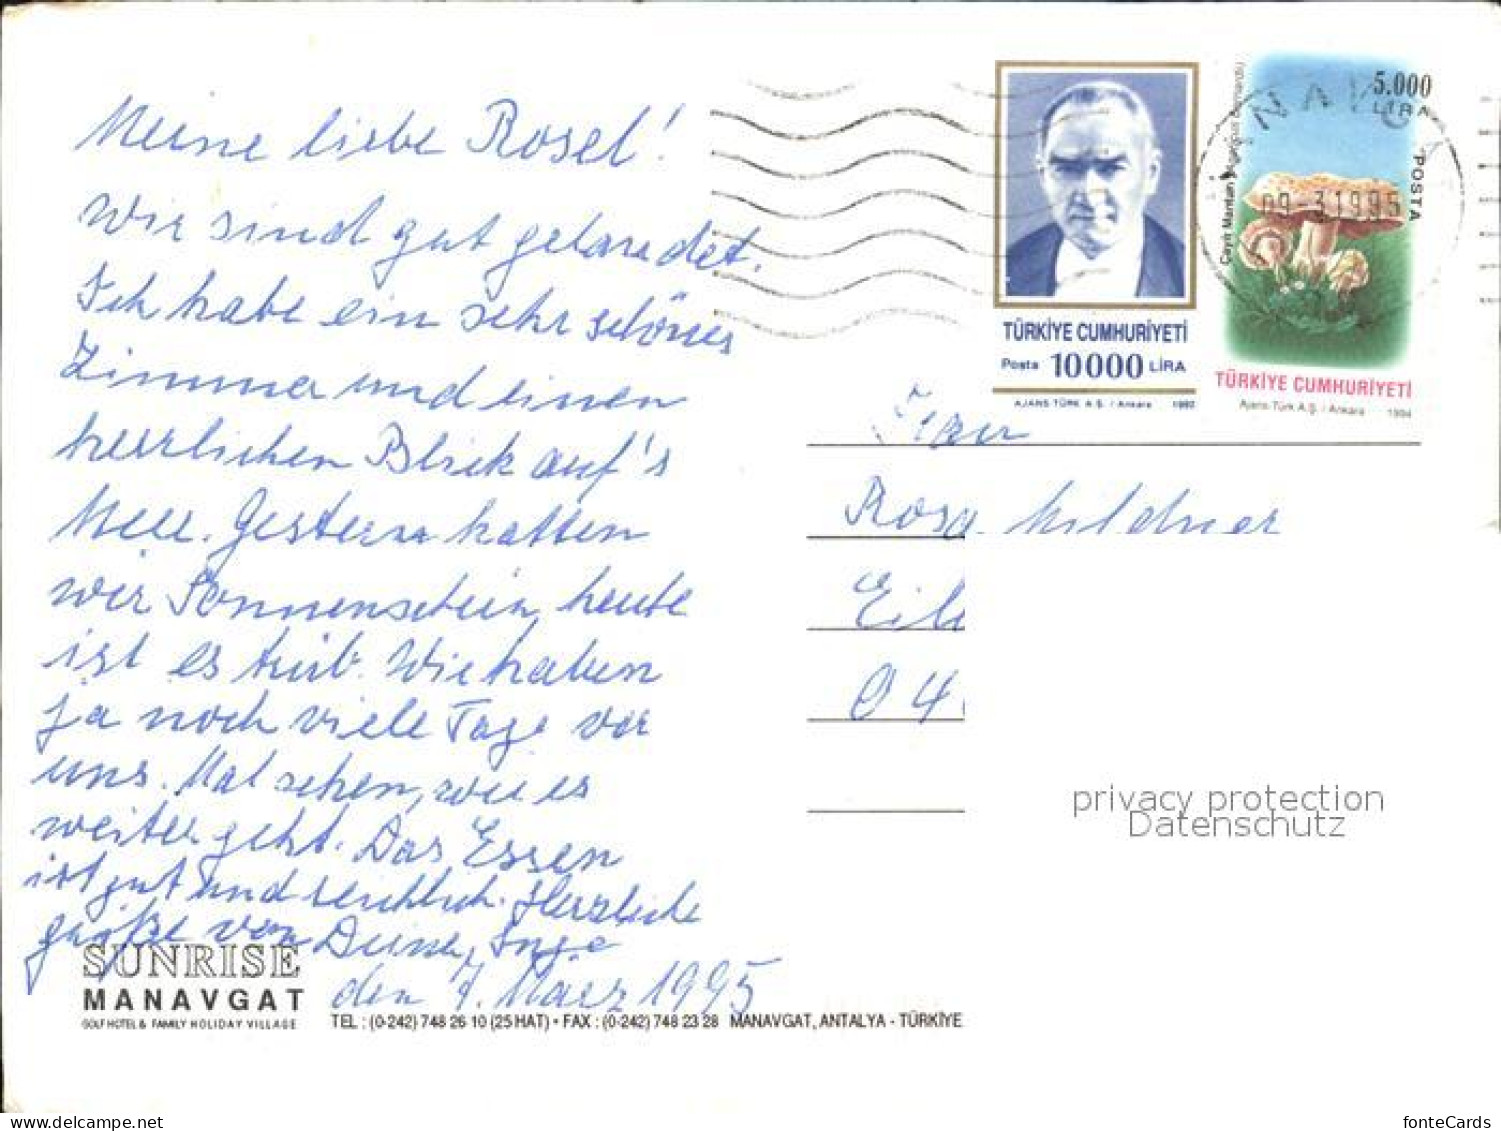 Meine liebe Rosel!
Wir sind gut gelandet.
Ich habe ein sehr schönes
Zimmer und einen
herrlichen Blick auf's
Meer. Gestern hatten
wir Sonnenschein, heute
ist es trüb. Wir haben
ja noch viele Tage vor
uns. Mal sehen, wie es
weiter geht. Das Essen
ist gut und reichlich. Herzliche
Grüße von Deiner Inge
den 7. März 1995
SUNRISE
MANAVGAT
GOLF HOTEL & FAMILY HOLIDAY VILLAGE
TEL : (0-242) 748 26 10 (25 HAT) • FAX : (0-242) 748 23 28 MANAVGAT, ANTALYA - TÜRKİYE
TÜRKİYE CUMHURİYETİ
Posta 10000 LİRA
AJANS TÜRK A.Ş. / Ankara 1992
5.000
LİRA
POSTA
Çayır Mantarı
09 3 1995
TÜRKİYE CUMHURİYETİ
Ajans-Türk A.Ş. / Ankara 1994
Frau
Rosa
04
privacy protection
Datenschutz
delcampe.net
fonteCards